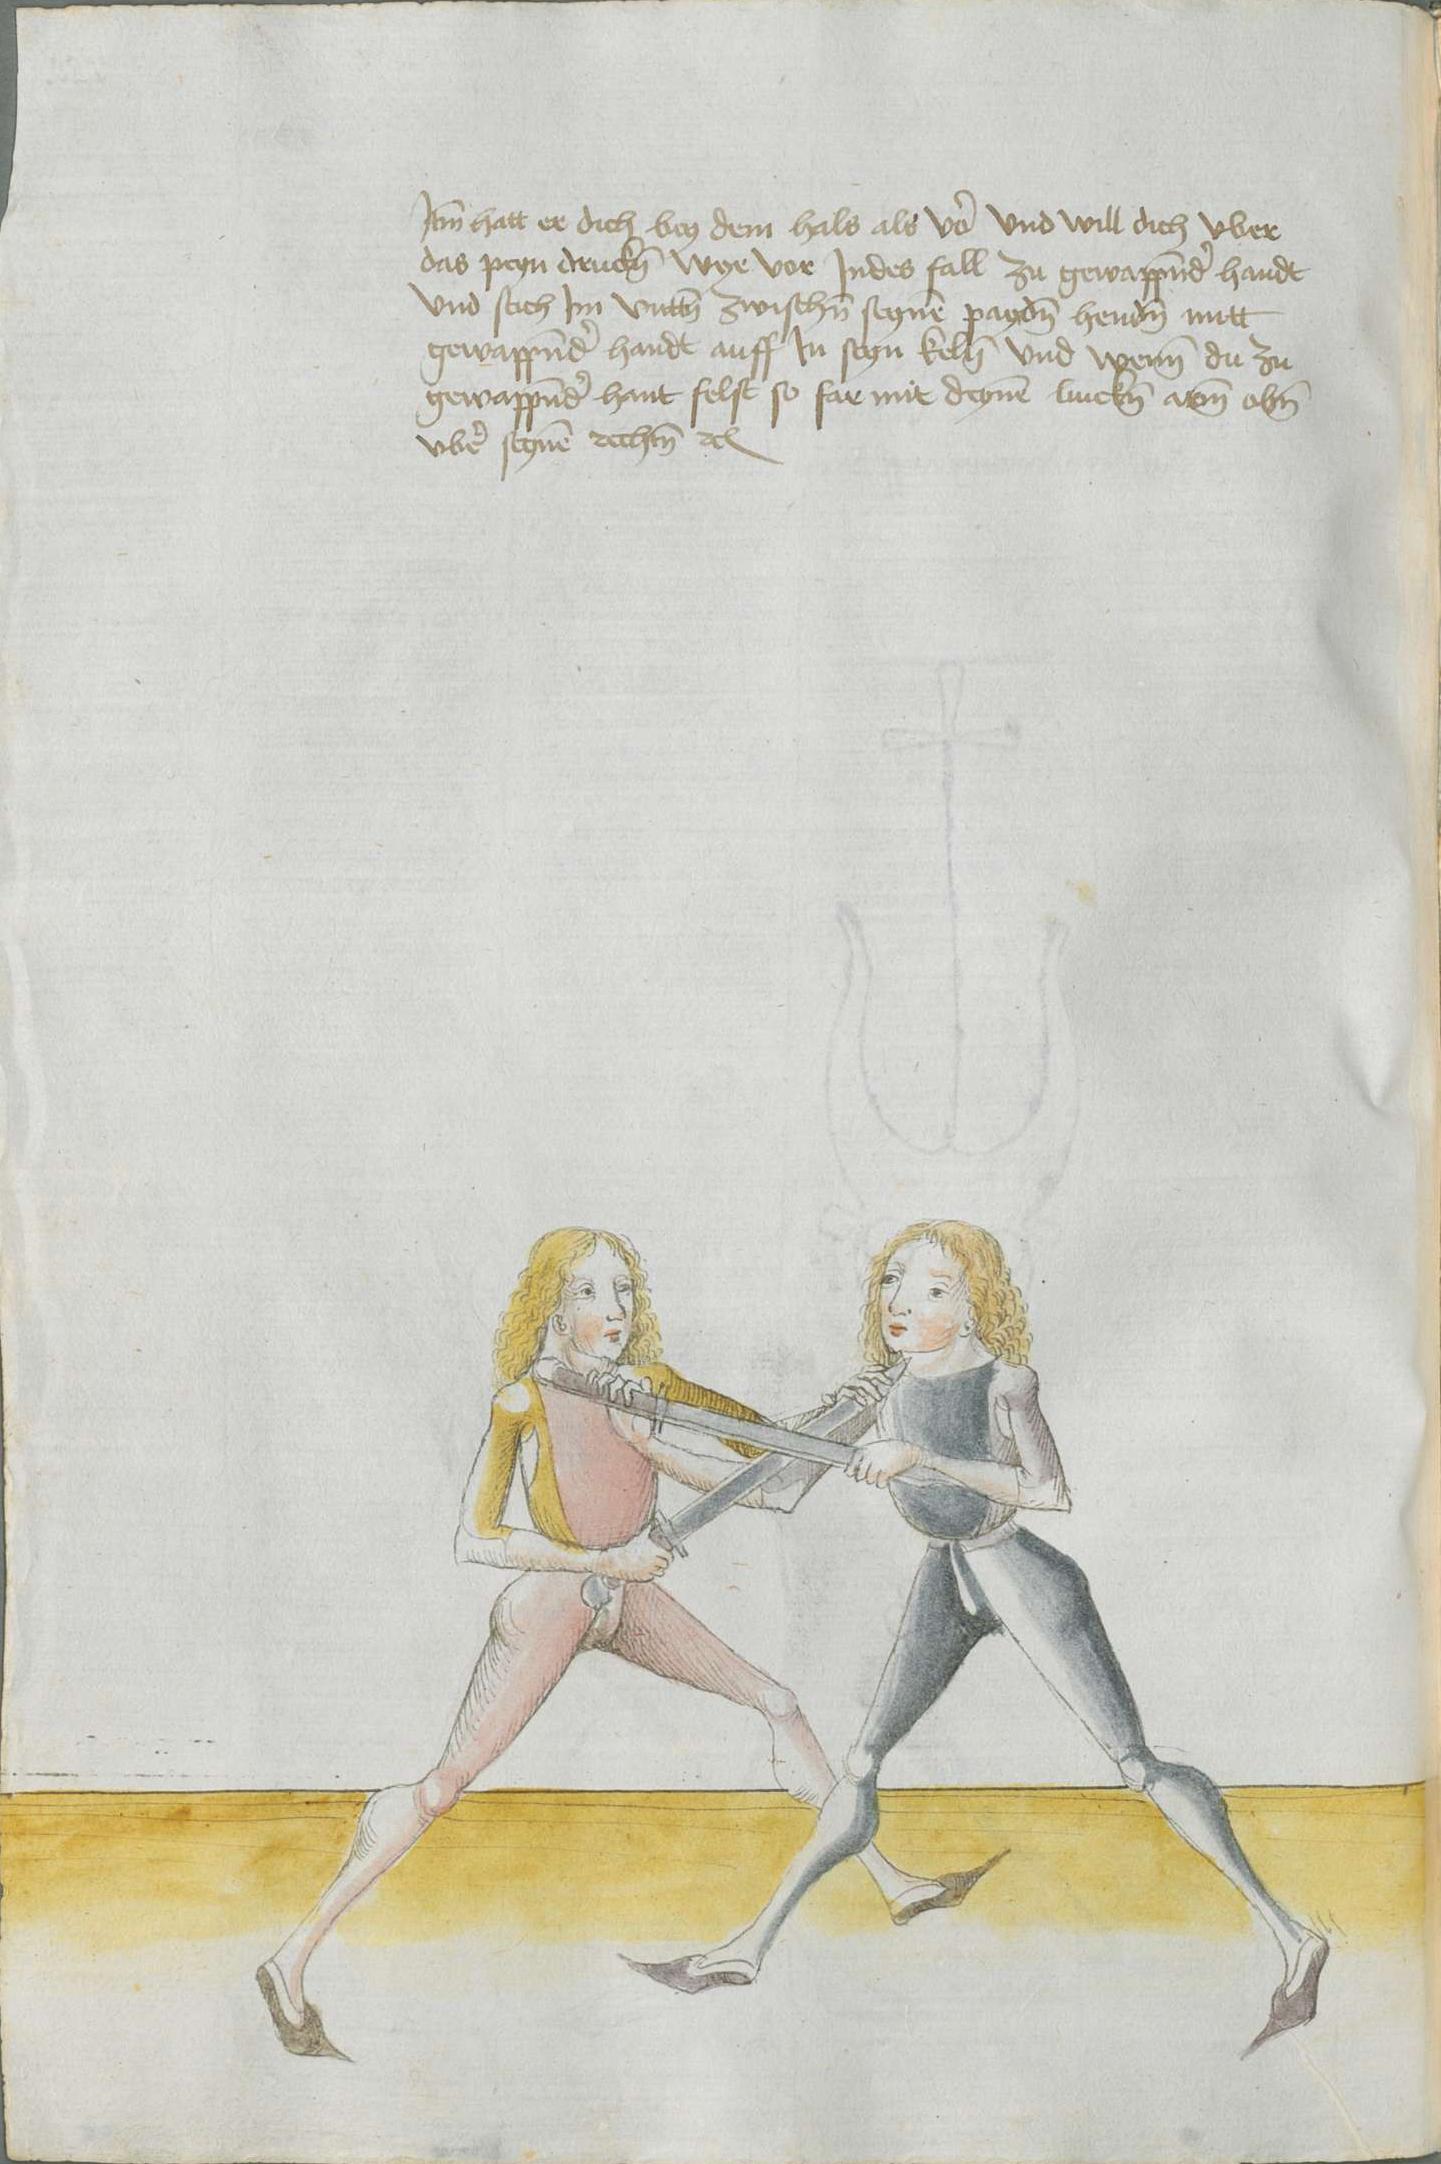 Itm̄ hatt er dich bey dem hals als vo᷑ Vnd will dich vber
das peyn druckn̄ Wye vor Indes fall zu gewappnd᷑ handt
Vnd stich Im vnttn̄ zwischn̄ seynē paydn̄ hendn̄ mitt
gewappnd᷑ handt auff In seyn keln̄ Vnd wenn̄ du zu
gewappnd᷑ hant felst so far mit deynē linckn̄ arm̄ obn̄
vbe᷑ seynē rechtn̄ rc